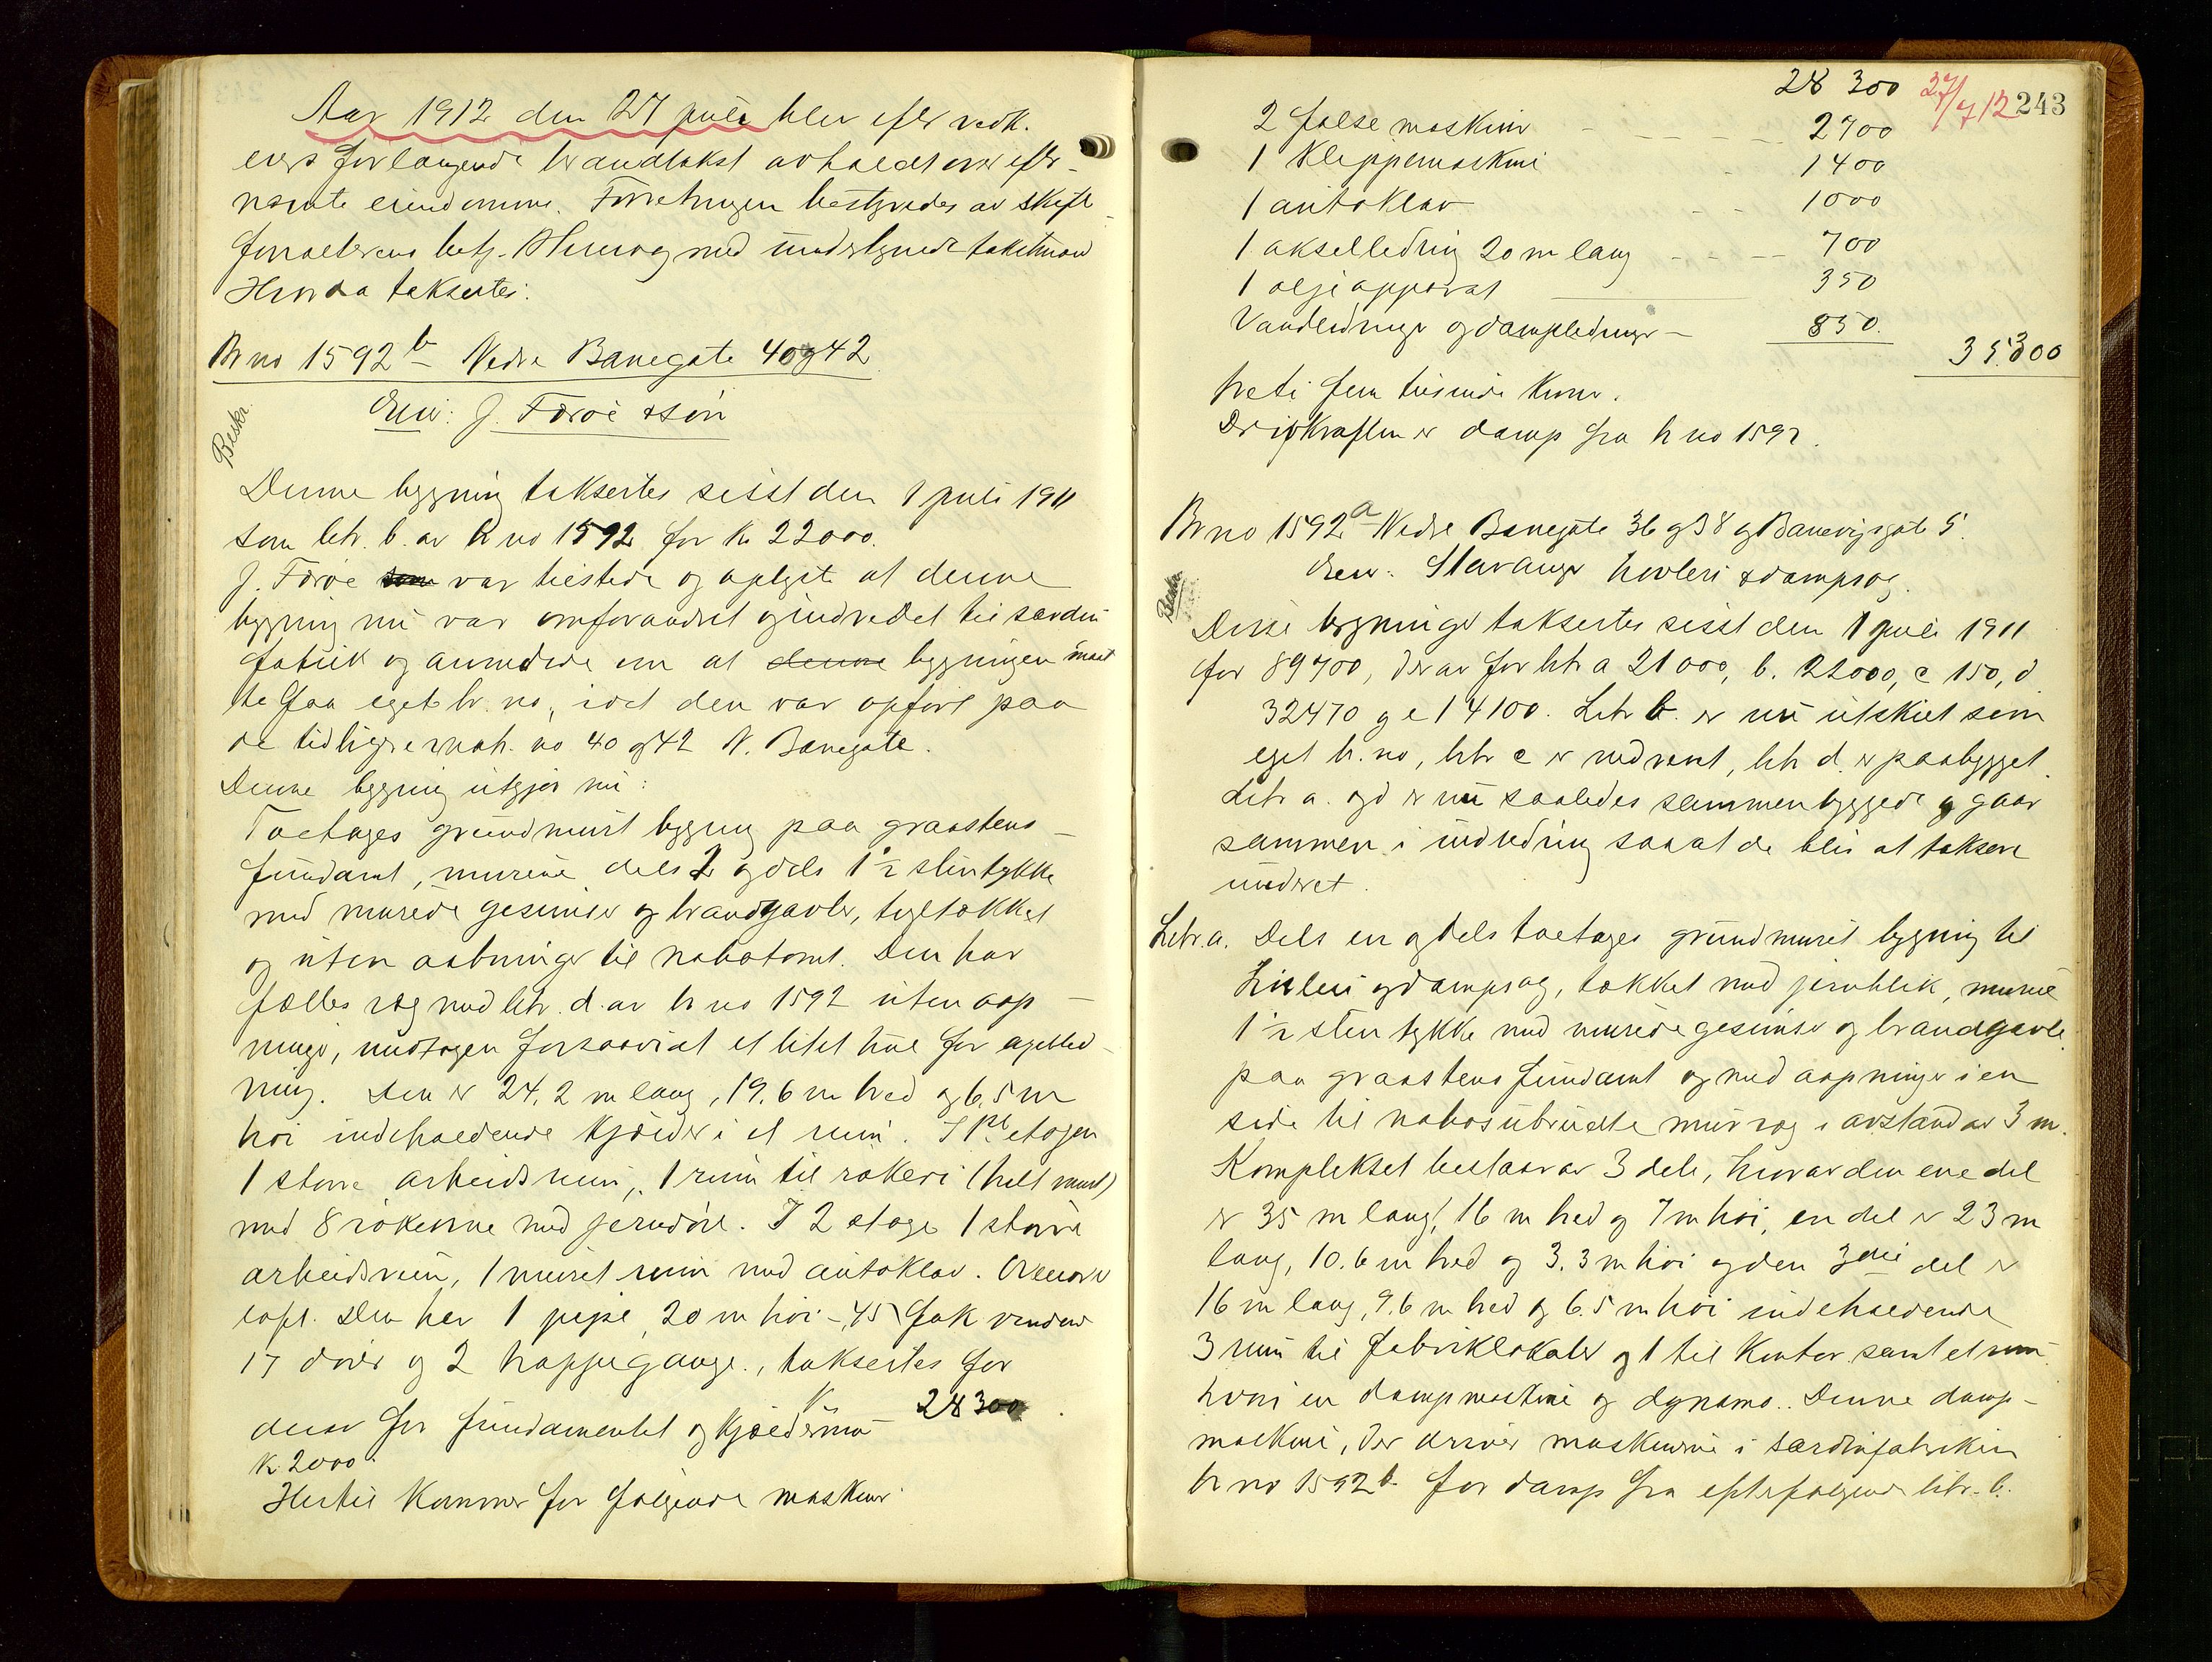 Aar 1912 den 27 juli blev efter vedk.
eiers forlangende brandtakst avholdt over efter-
nævnte eiendomme. Forretningen bestyredes av skifte
forvalterens betj. med undertegnede takstmænd
takseertes:
Br no 1592 b Nedre Banegate 40 og 42
Beskr.
Eier: J. Færøe & søn
Denne bygning taksertes sidst den 1 juli 1911
som litr. b. av br no 1592 for kr 22000.
J. Færøe som var tilstede og oplyste at denne
bygning nu var omforandret og indredet til sardin
fabrik og anmodede om at denne bygningen maat
te faa eget br. no, idet den var opført paa
de tidligere matr. no 40 og 42 N. Banegate.
Denne bygning utgjør nu:
Toetages grundmuret bygning paa graastens-
fundamt, murene dels 2 og dels 1 1/2 sten tykke
med murede gesimser og brandgavler, teglt ækket
og uten aabninger til nabotomt. Den har
fælles væg med litr. d. av br no 1592 uten aap-
ninger, undtagen forsaavidt et litet hul for aksled-
ning. Den er 24,2 m lang, 19.6 m bred og 6,5 m
høi indeholdende kjælder i et rum. I 1ste etagen
1 større arbeidsrum, 1 rum til røkeri (helt muret)
med 8 røkovne med jerndøre. I 2 etage 1 større
arbeidsrum, 1 muret rum med autoklav. Ovenover
loft. Den har 1 pipe, 20 m høi - 45 fak vinduer
17 dører og 2 trappegange., taksertes for
K 28300
derav for fundamentet og kjældermur
K. 2000.
Hertil kommer for følgende maskiner
28 300 27/7 12 243
2 falsemaskiner - - - - 2700
1 klippemaskine - 1400
1 autoklav - - 1000
1 akselledning 20 m lang - - - 700
1 oljeapparat 350
Vandledninger og dampledninger - 850. 35300
treti fem tusinde kroner.
Drivkraften er damp fra br no 1592.
Br no 1592 a Nedre Banegate 36 og 38 og Banevigsgate 5.
Eier: Stavanger høvleri & dampsag.
Beskr
Disse bygninger taksertes sidst den 1 juli 1911
for 89700, derav for litr a 21000, b. 22000, c 150, d
32470 og e 14100. Litr b. er nu utskilt som
eget br. no, litr c er nedrevet, litr d. er paabygget.
Litr a. og d er nu saaledes sammenbyggede og gaar
sammen i indredning saa at de blir at taksere
under et.
Litr. a. Dels en og dels toetages grundmuret bygning til
høvleri og dampsag, tækket med jernblik, murene
1 1/2 sten tykke med murede gesimser og brandgavle
paa graastens fundamt og med aapninger i en
side til naboens ubrudte murvæg i avstand av 3 m.
Komplekset bestaar av 3 dele, hvorav den ene del
er 35 m lang, 16 m bred og 7 m høi, en del er 23 m
lang, 10.6 m bred og 3.3 m høi og den 3die del er
16 m lang, 9.6 m bred og 6.5 m høi indeholdende
3 rum til fabriklokaler og 1 til kontor samt et rum
hvori en dampmaskine og dynamo. Denne damp-
maskine, der driver maskinerne i sardinfabrikken
br no 1592 b. faar damp fra efterfølgende litr. b.